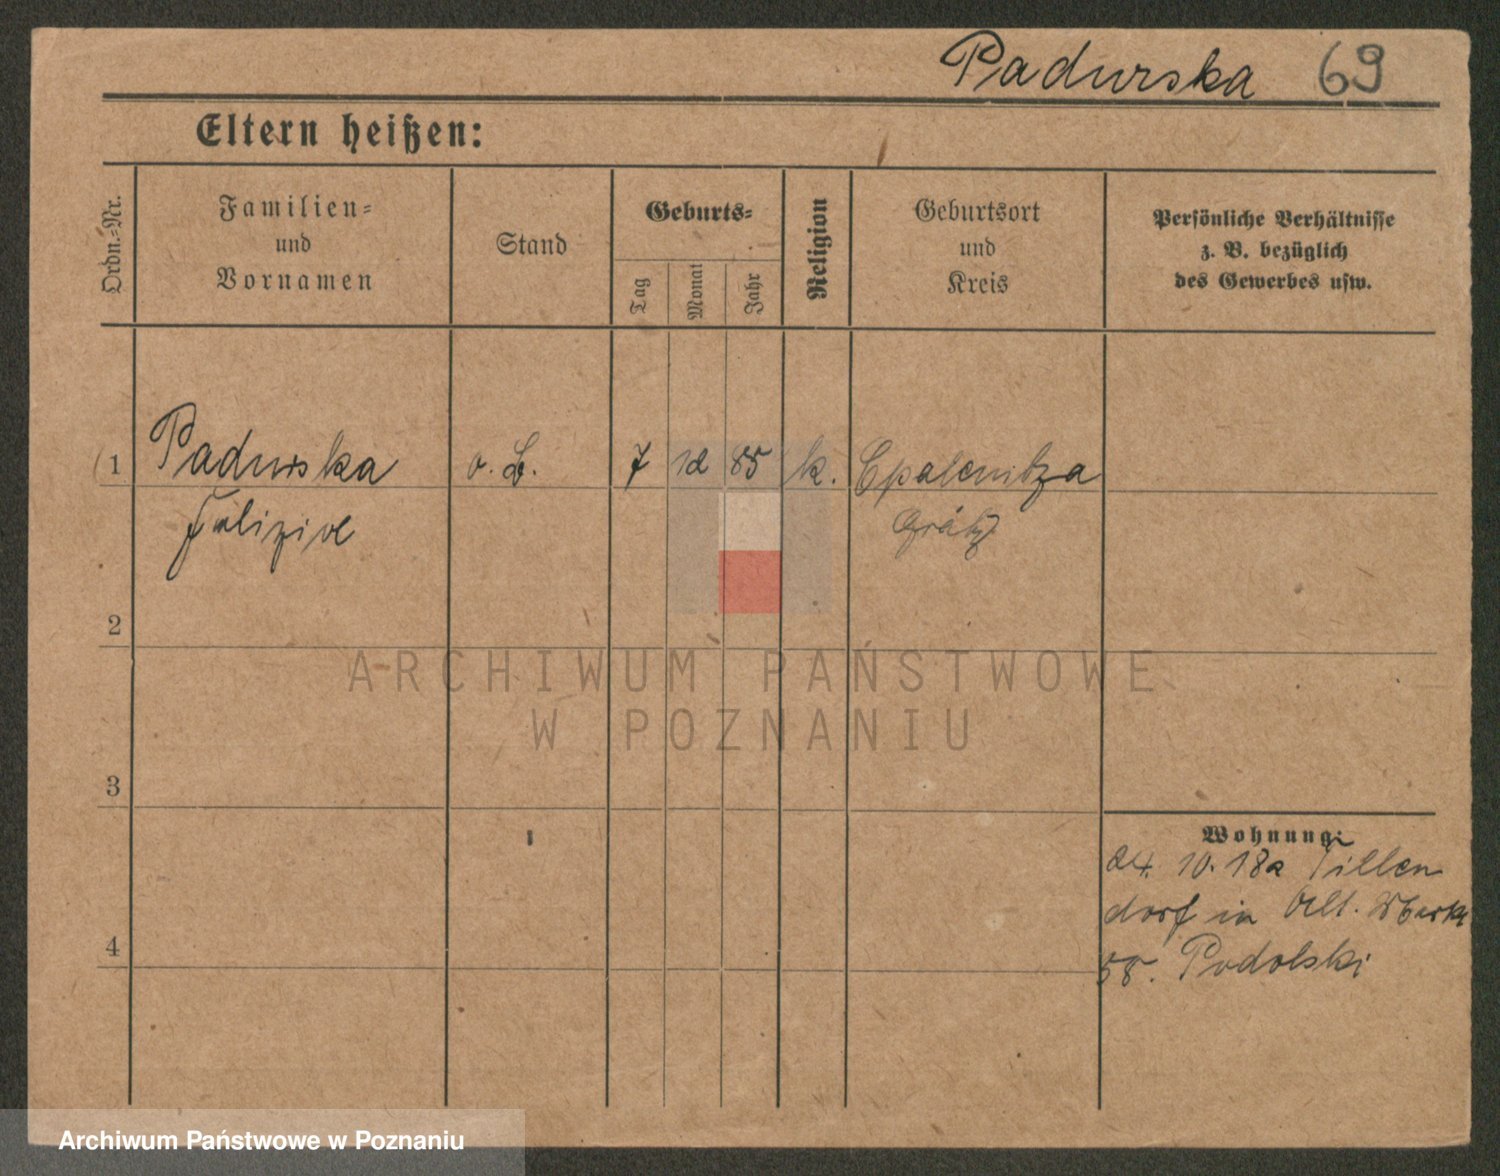 Padurska 69
Eltern heißen:
Ordn.-Nr.
Familien-
und
Vornamen
Stand
Geburts-
Tag
Monat
Jahr
Religion
Geburtsort
und
Kreis
Persönliche Verhältnisse
z. B. bezüglich
des Gewerbes usw.
1 Padurska o. B. 7 12 85 k. Opalenitza
Grätz
2
ARCHIWUM PAŃSTWOWE
W POZNANIU
3
Wohnung:
24. 10. 18 a Tillen
dorf in Alt.
58. Podolski
4
Archiwum Państwowe w Poznaniu